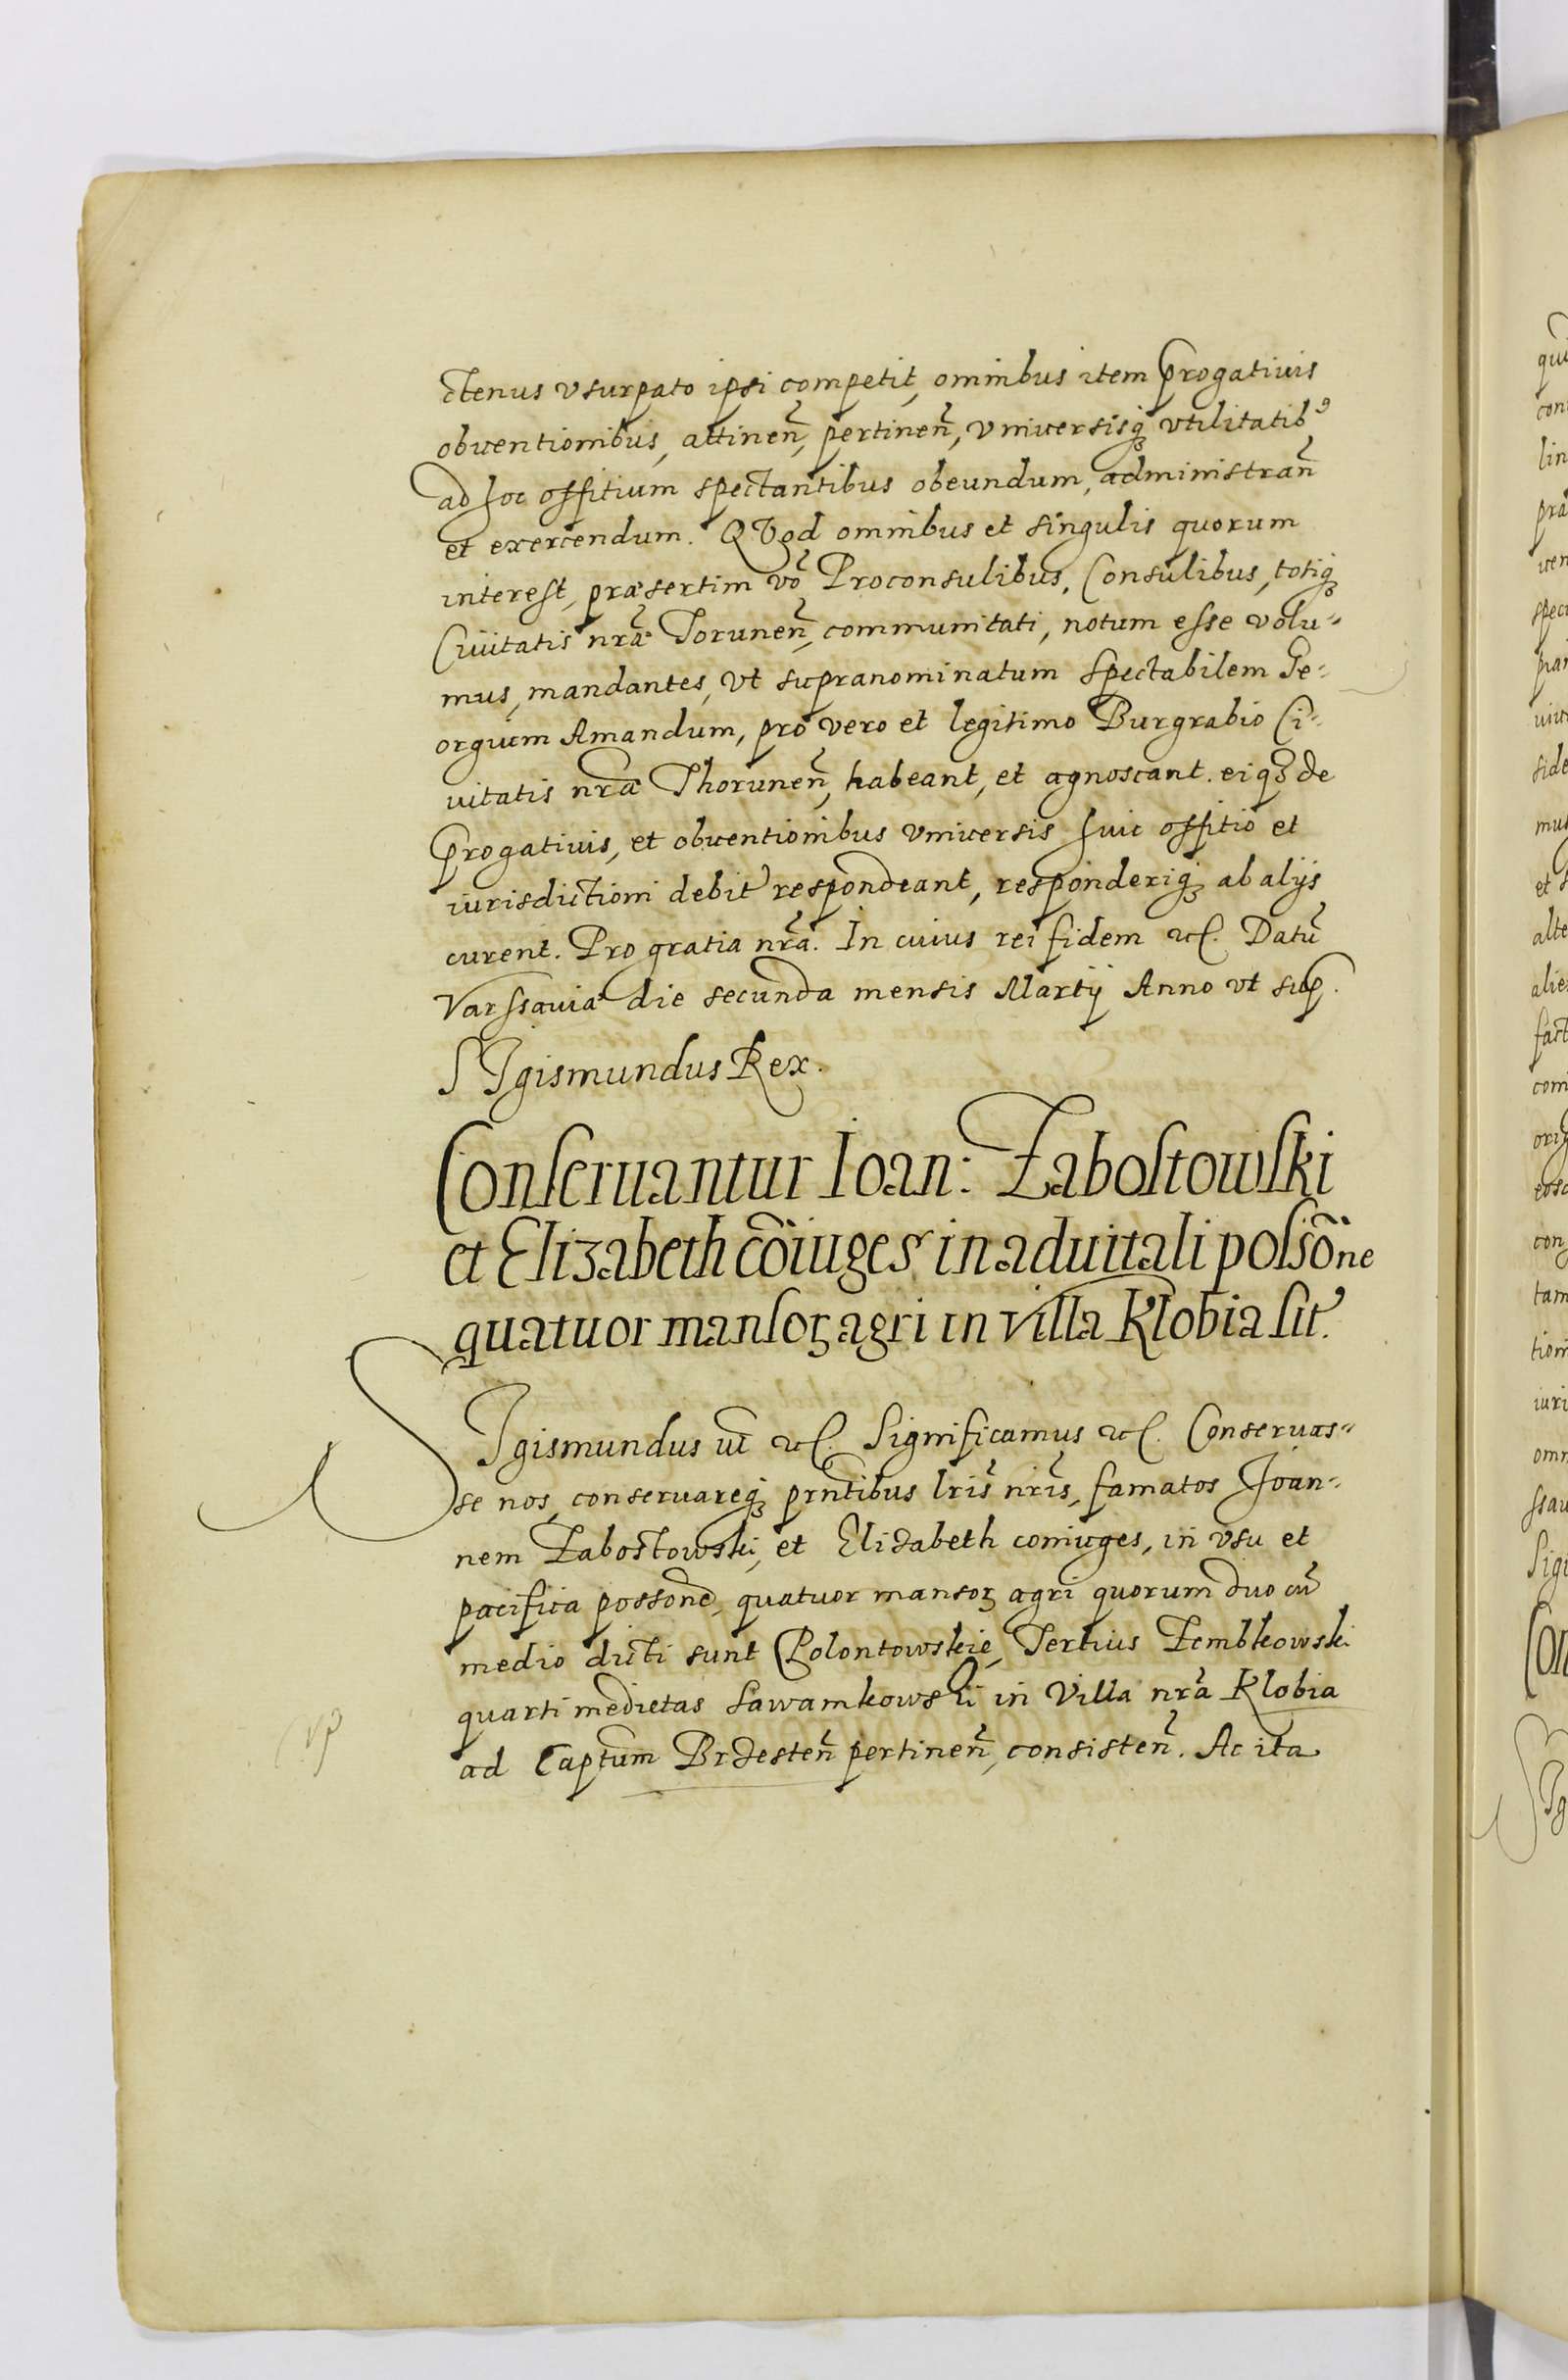 ctenus vsurpato ipsi competit, omnibus item Progatiuis
obuentionibus, attinen̄, pertinen̄, vniuersisq₃ vtilitatib⁹
ad hoc offitium spectantibus obeundum, administran̄
et exercendum. QVod omnibus et singulis quorum
interest, præsertim vō Proconsulibus, Consulibus, totiq₃
Ciuitatis nr̄æ Torunen̄, communitati, notum esse volu-
mus, mandantes, vt supranominatum Spectabilem Ge-
orgium Amandum, pro vero et legitimo Burgrabio Ci-
uitatis nr̄æ Thorunen̄, habeant, et agnoscant. eiq₃ de
Progatiuis, et obuentionibus vniuersis huic offitio et
iurisdictioni debit' respondeant, responderiq₃ ab alijs
curent. Pro gratia nr̄a. In cuius rei fidem etc. Datū
Varssauiæ die secunda mensis Martij Anno vt sup.
SIgismundus Rex.
Conseruantur Ioan: Zabostowski
et Elizabeth cōiuges in aduitali possōne
quatuor mansoꝝ agri in villa Klobia sit.
SIgismundus ut etc. Significamus etc. Conseruas-
se nos, conseruareq₃ prn̄tibus lr̄is nr̄is, famatos Joan-
nem Zabostowski, et Elizabeth coniuges, in vsu et
pacifica possone, quatuor mansoꝝ agri quorum duo cū
medio dicti sunt Polontowskie, Tertius Zembkowski
quarti medietas Sawamkowski in Villa nr̄a Klobia
ad Captum Brzesten̄ pertinen̄, consisten̄. Ac ita